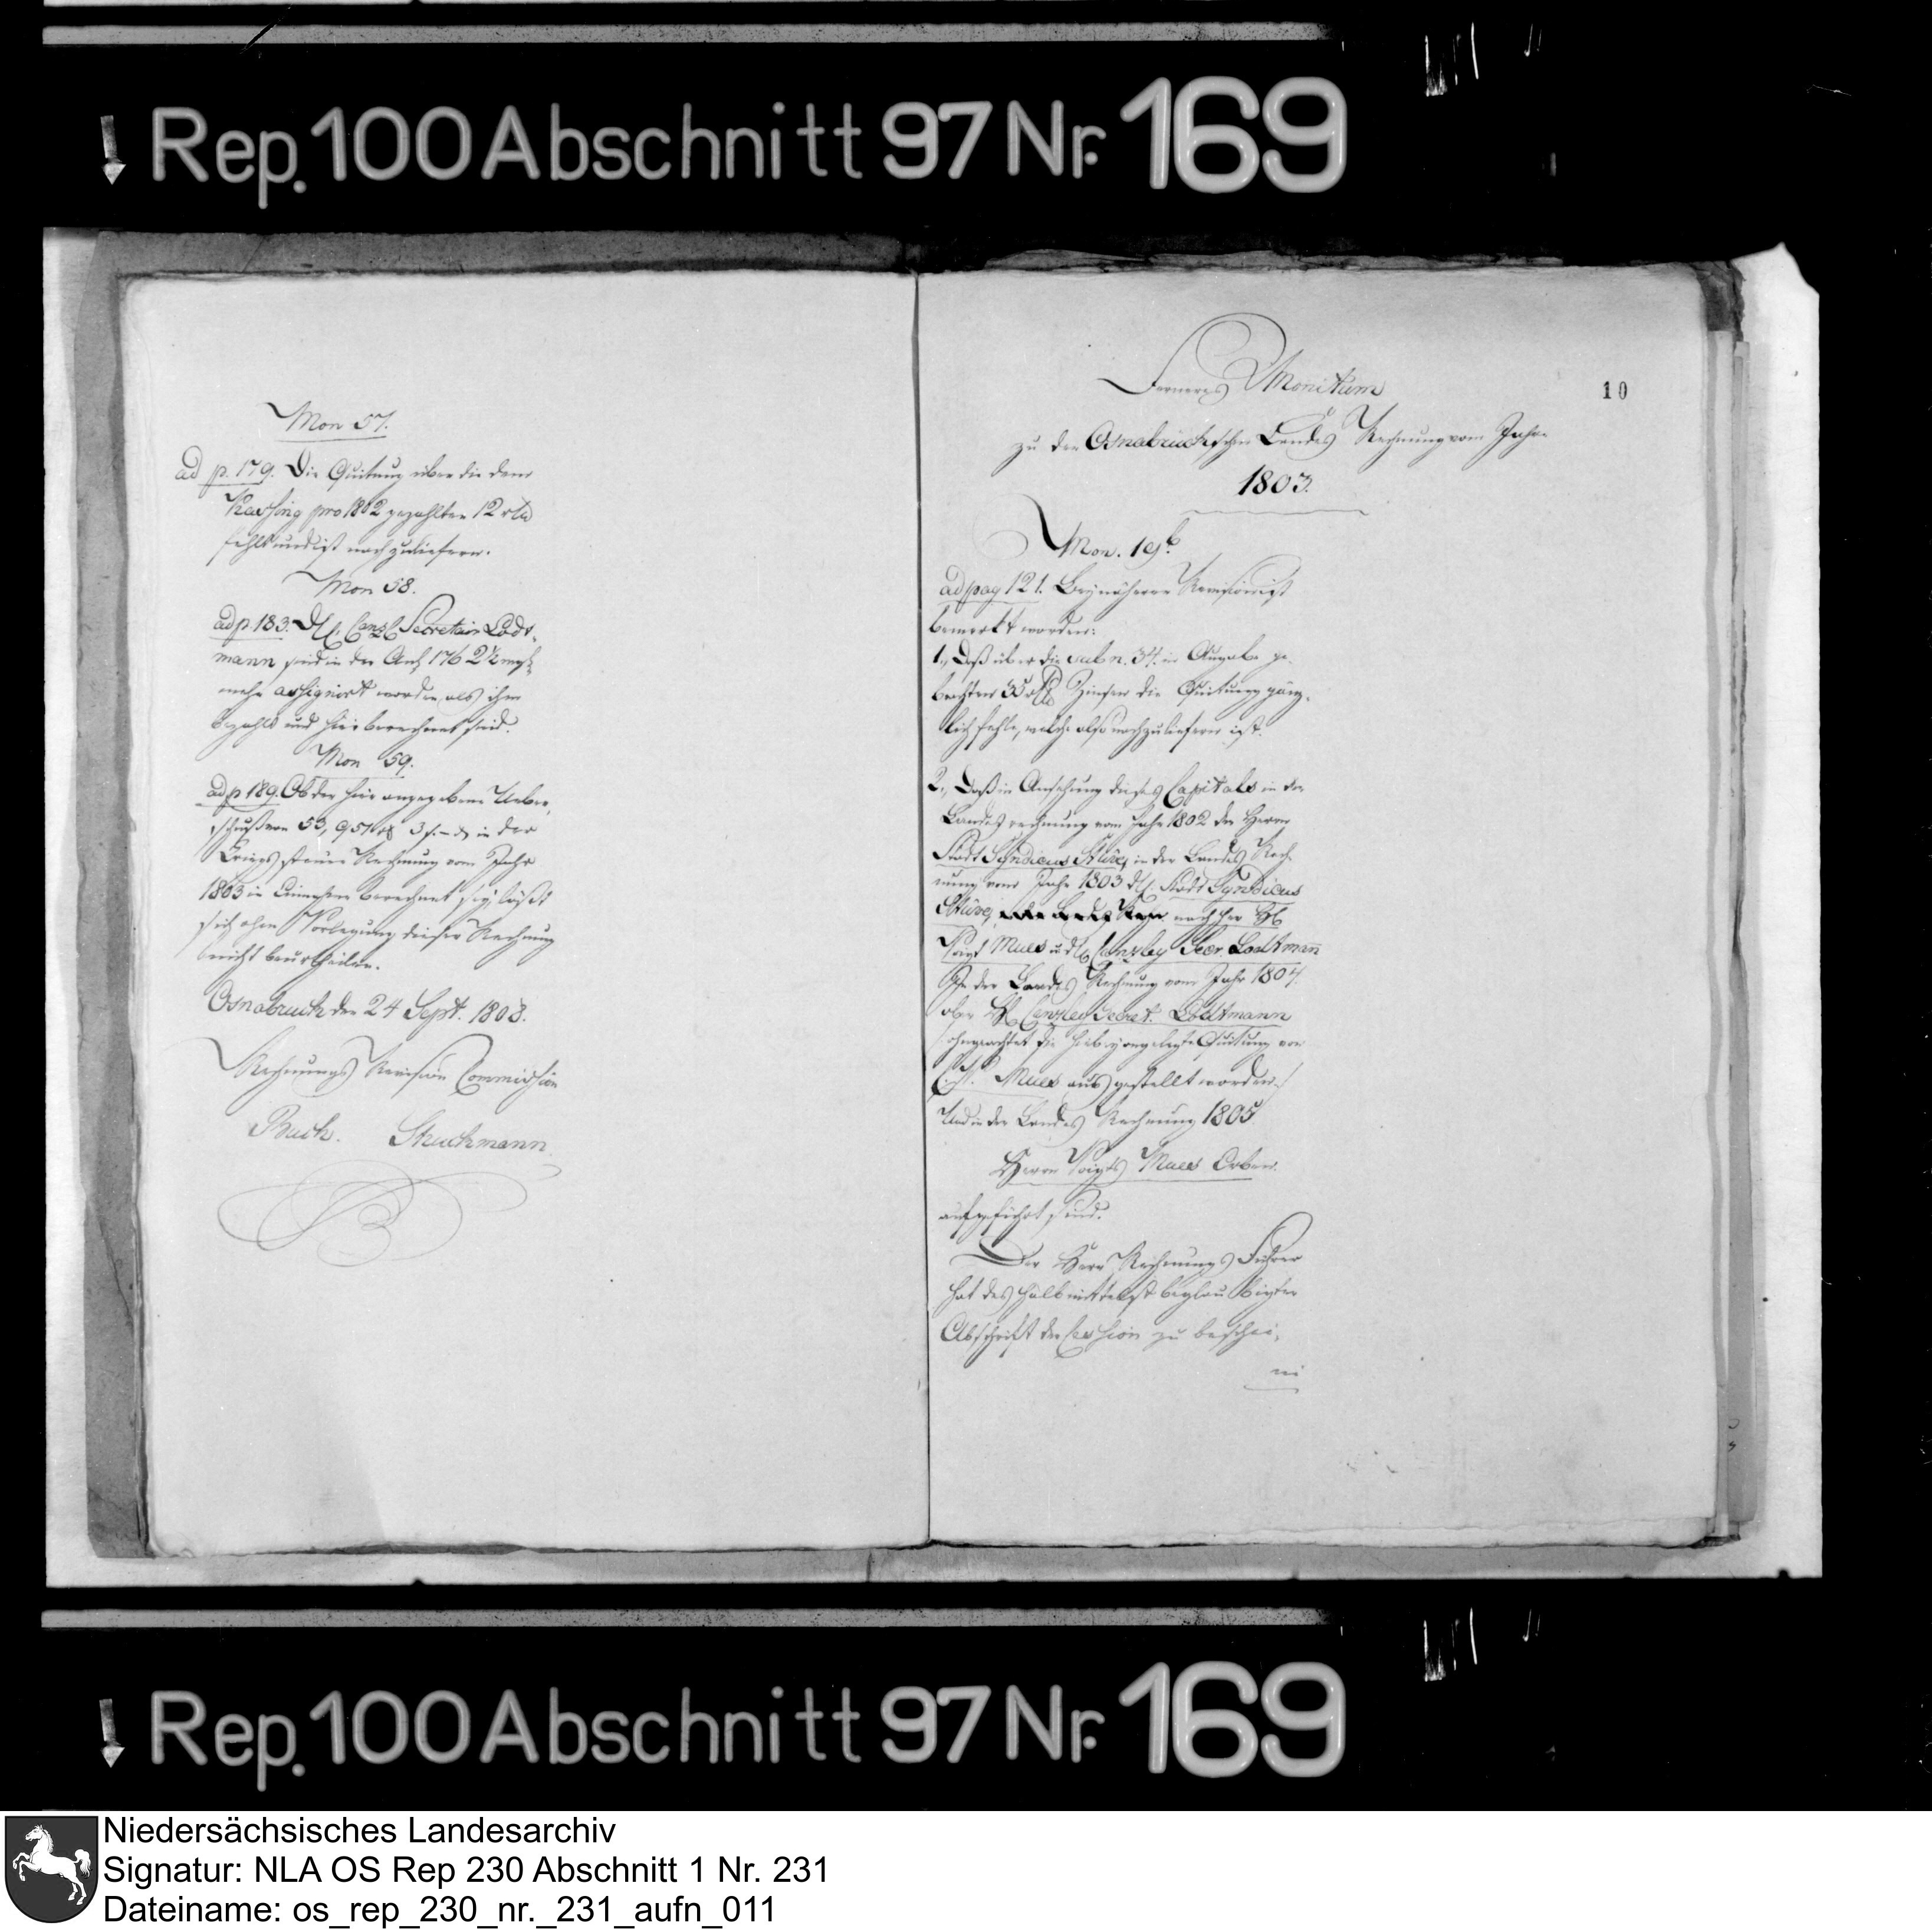 Rep. 100 Abschnitt 97 Nr. 169
Mon 57.
ad p. 179. Die Quitung über die dem
Kassing pro 1802 gezahlten 12 rtlr
fehlt und ist nachzuliefern.
Mon 58.
ad p. 183. Canzl Secretair Lodt-
mann sind in der Anl 176
mehr assignirt worden, als ihm
bezahlt und hier berechnet sind.
Mon 59.
ad p 189. Ob der hier angegebene Ueber-
schuß von 53,957 in der
Kriegssteuer Rechnung vom Jahr
1803 in Einnahme berechnet sey, läßt
sich ohne Vorlegung dieser Rechnung
nicht beurtheilen.
Osnabruck den 24 Sept. 1808.
Rechnungs Revision Commission
Buch. Struckmann
10
Ferneres Monitum
zu der Osnabrückschen Landes Rechnung vom Jahre
1803.
Mon. 19b
ad pag 121. Bey näherer Revision ist
bemerkt worden:
1., Daß über die sub n. 34. in Ausgabe ge-
brachten 35 Zinsen die Quitung gänz-
lich fehle, welche also nachzuliefern ist.
2., Daß in Ansehung dieses Capitals in der
Landes rechnung vom Jahr 1802 der Herr
Stadt Syndicus Stüve, in der Landes Rech-
nung vom Jahr 1803 Stadt Syndicus
Stüve, nachher
Voigt Mues u Canzley Secr. Lodtmann
In der Landes Rechnung vom Jahr 1804
aber Canzley Secret. Lodtmann
ohngeachtet die hiebey angelegte Quitung von
Mues ausgestellt worden
Und in der Landes Rechnung 1805
Herrn Voigts Mues Erben
aufgeführt sind.
Der Herr Rechnungs Führer
hat deshalb mittelst beglaubigter
Abschrift der Cession zu beschei-
ni
Rep. 100 Abschnitt 97 Nr. 169
Niedersächsisches Landesarchiv
Signatur: NLA OS Rep 230 Abschnitt 1 Nr. 231
Dateiname: os_rep_230_nr._231_aufn_011